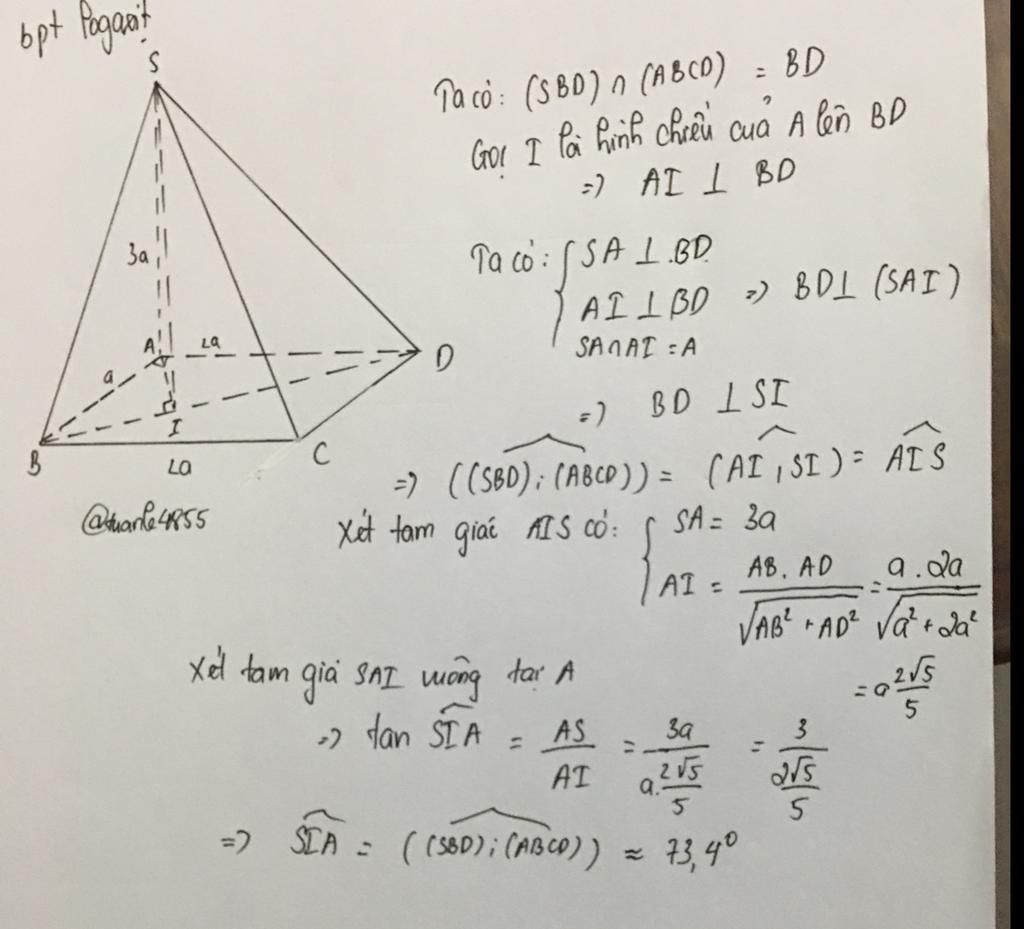 bpt Pogaxit
S
3a
A
2a
a
D
I
B
2a
C
@tuanle4855
Ta có: (SBD) ∩ (ABCD) = BD
Gọi I là hình chiếu của A lên BD
=> AI ⊥ BD
Ta có: { SA ⊥ BD
AI ⊥ BD => BD ⊥ (SAI)
SA ∩ AI = A
=> BD ⊥ SI
=> ((SBD);(ABCD)) = (AI, SI) = AIS
Xét tam giác AIS có: { SA = 3a
AI = AB. AD / √(AB² + AD²) = a . 2a / √(a² + 2a²)
= a 2√5/5
Xét tam giá SAI vuông tại A
=> tan SIA = AS/AI = 3a / (a. 2√5/5) = 3 / (2√5/5)
=> SIA = ((SBD);(ABCD)) ≈ 73,4⁰